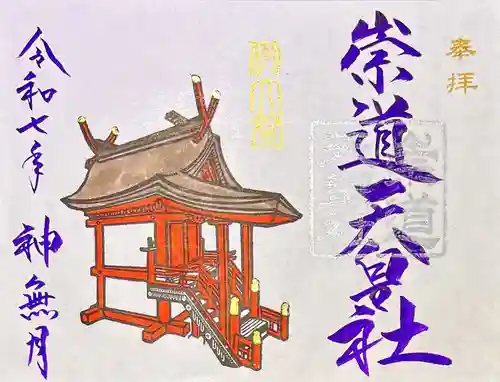 奉拝
崇道天皇社
令和七年 神無月